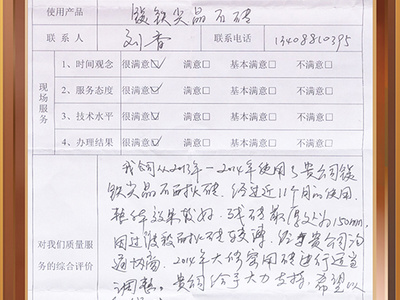 使用产品 镁铁尖晶石砖
联系人 刘香 联系电话 13408810395
现场服务
1、时间观念 很满意☑ 满意☐ 基本满意☐ 不满意☐
2、服务态度 很满意☑ 满意☐ 基本满意☐ 不满意☐
3、技术水平 很满意☑ 满意☐ 基本满意☐ 不满意☐
4、办理结果 很满意☑ 满意☐ 基本满意☐ 不满意☐
对我们质量服务的综合评价
我公司从2013年—2014年使用了贵公司镁
铁尖晶石砖，经过近11个月的使用，
整体效果较好，残砖最厚处为150mm，
经与贵公司沟
通协商，2014年大修要用砖进行适当
调整。贵公司给予大力支持，希望以